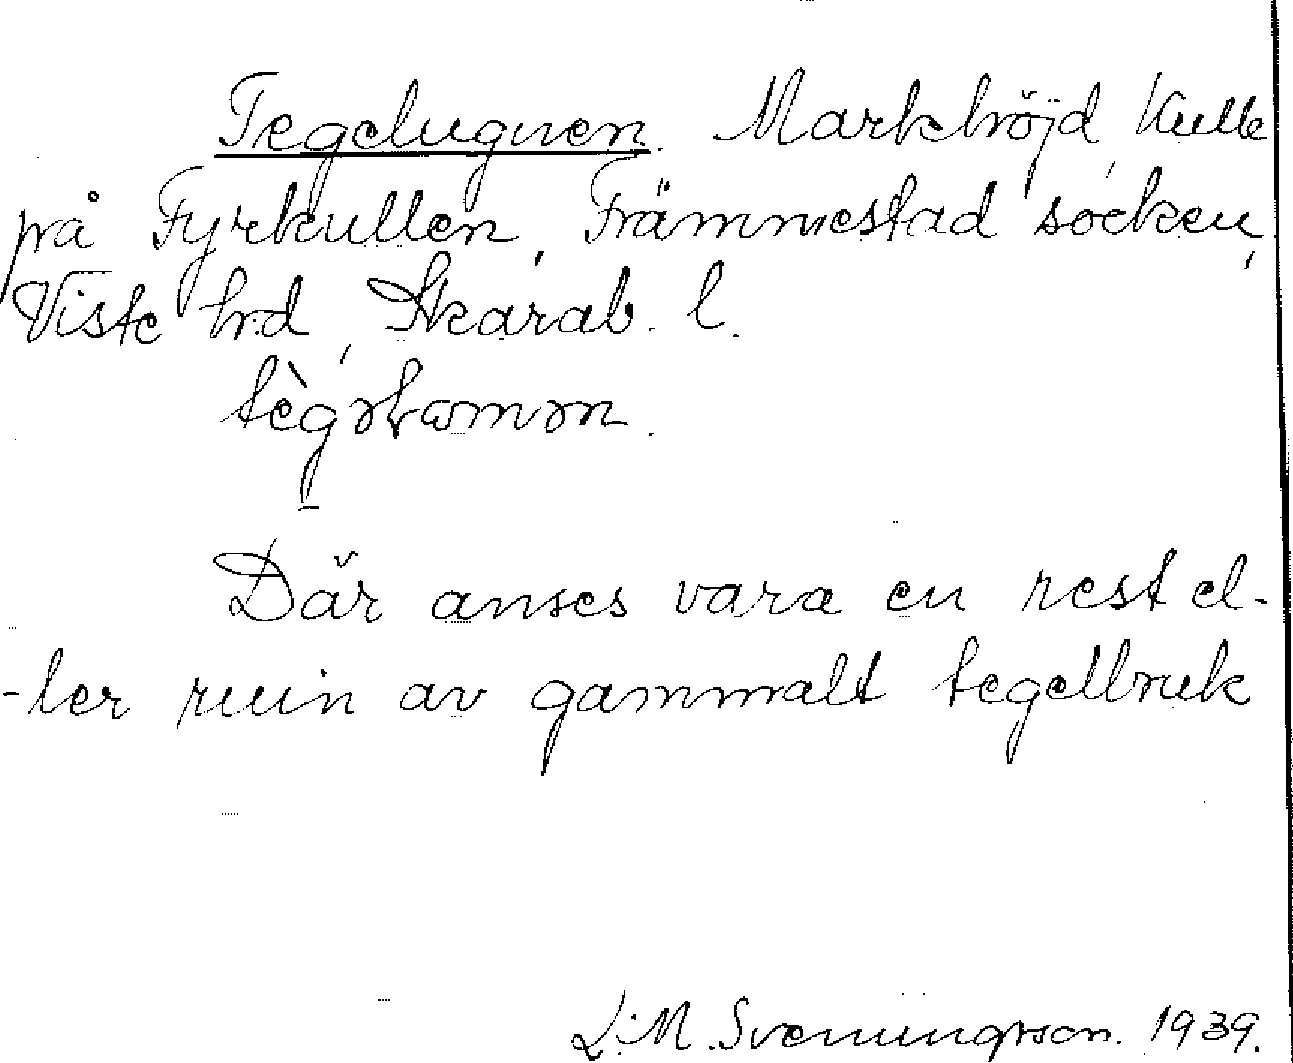 Tegelugnen. Markhöjd, Kulle
på Fyrkullen, Främmestad socken,
Viste hrd, Skarab. l.
Där anses vara en rest el-
-ler ruin av gammalt tegelbruk
L. M. Svenungsson. 1939.